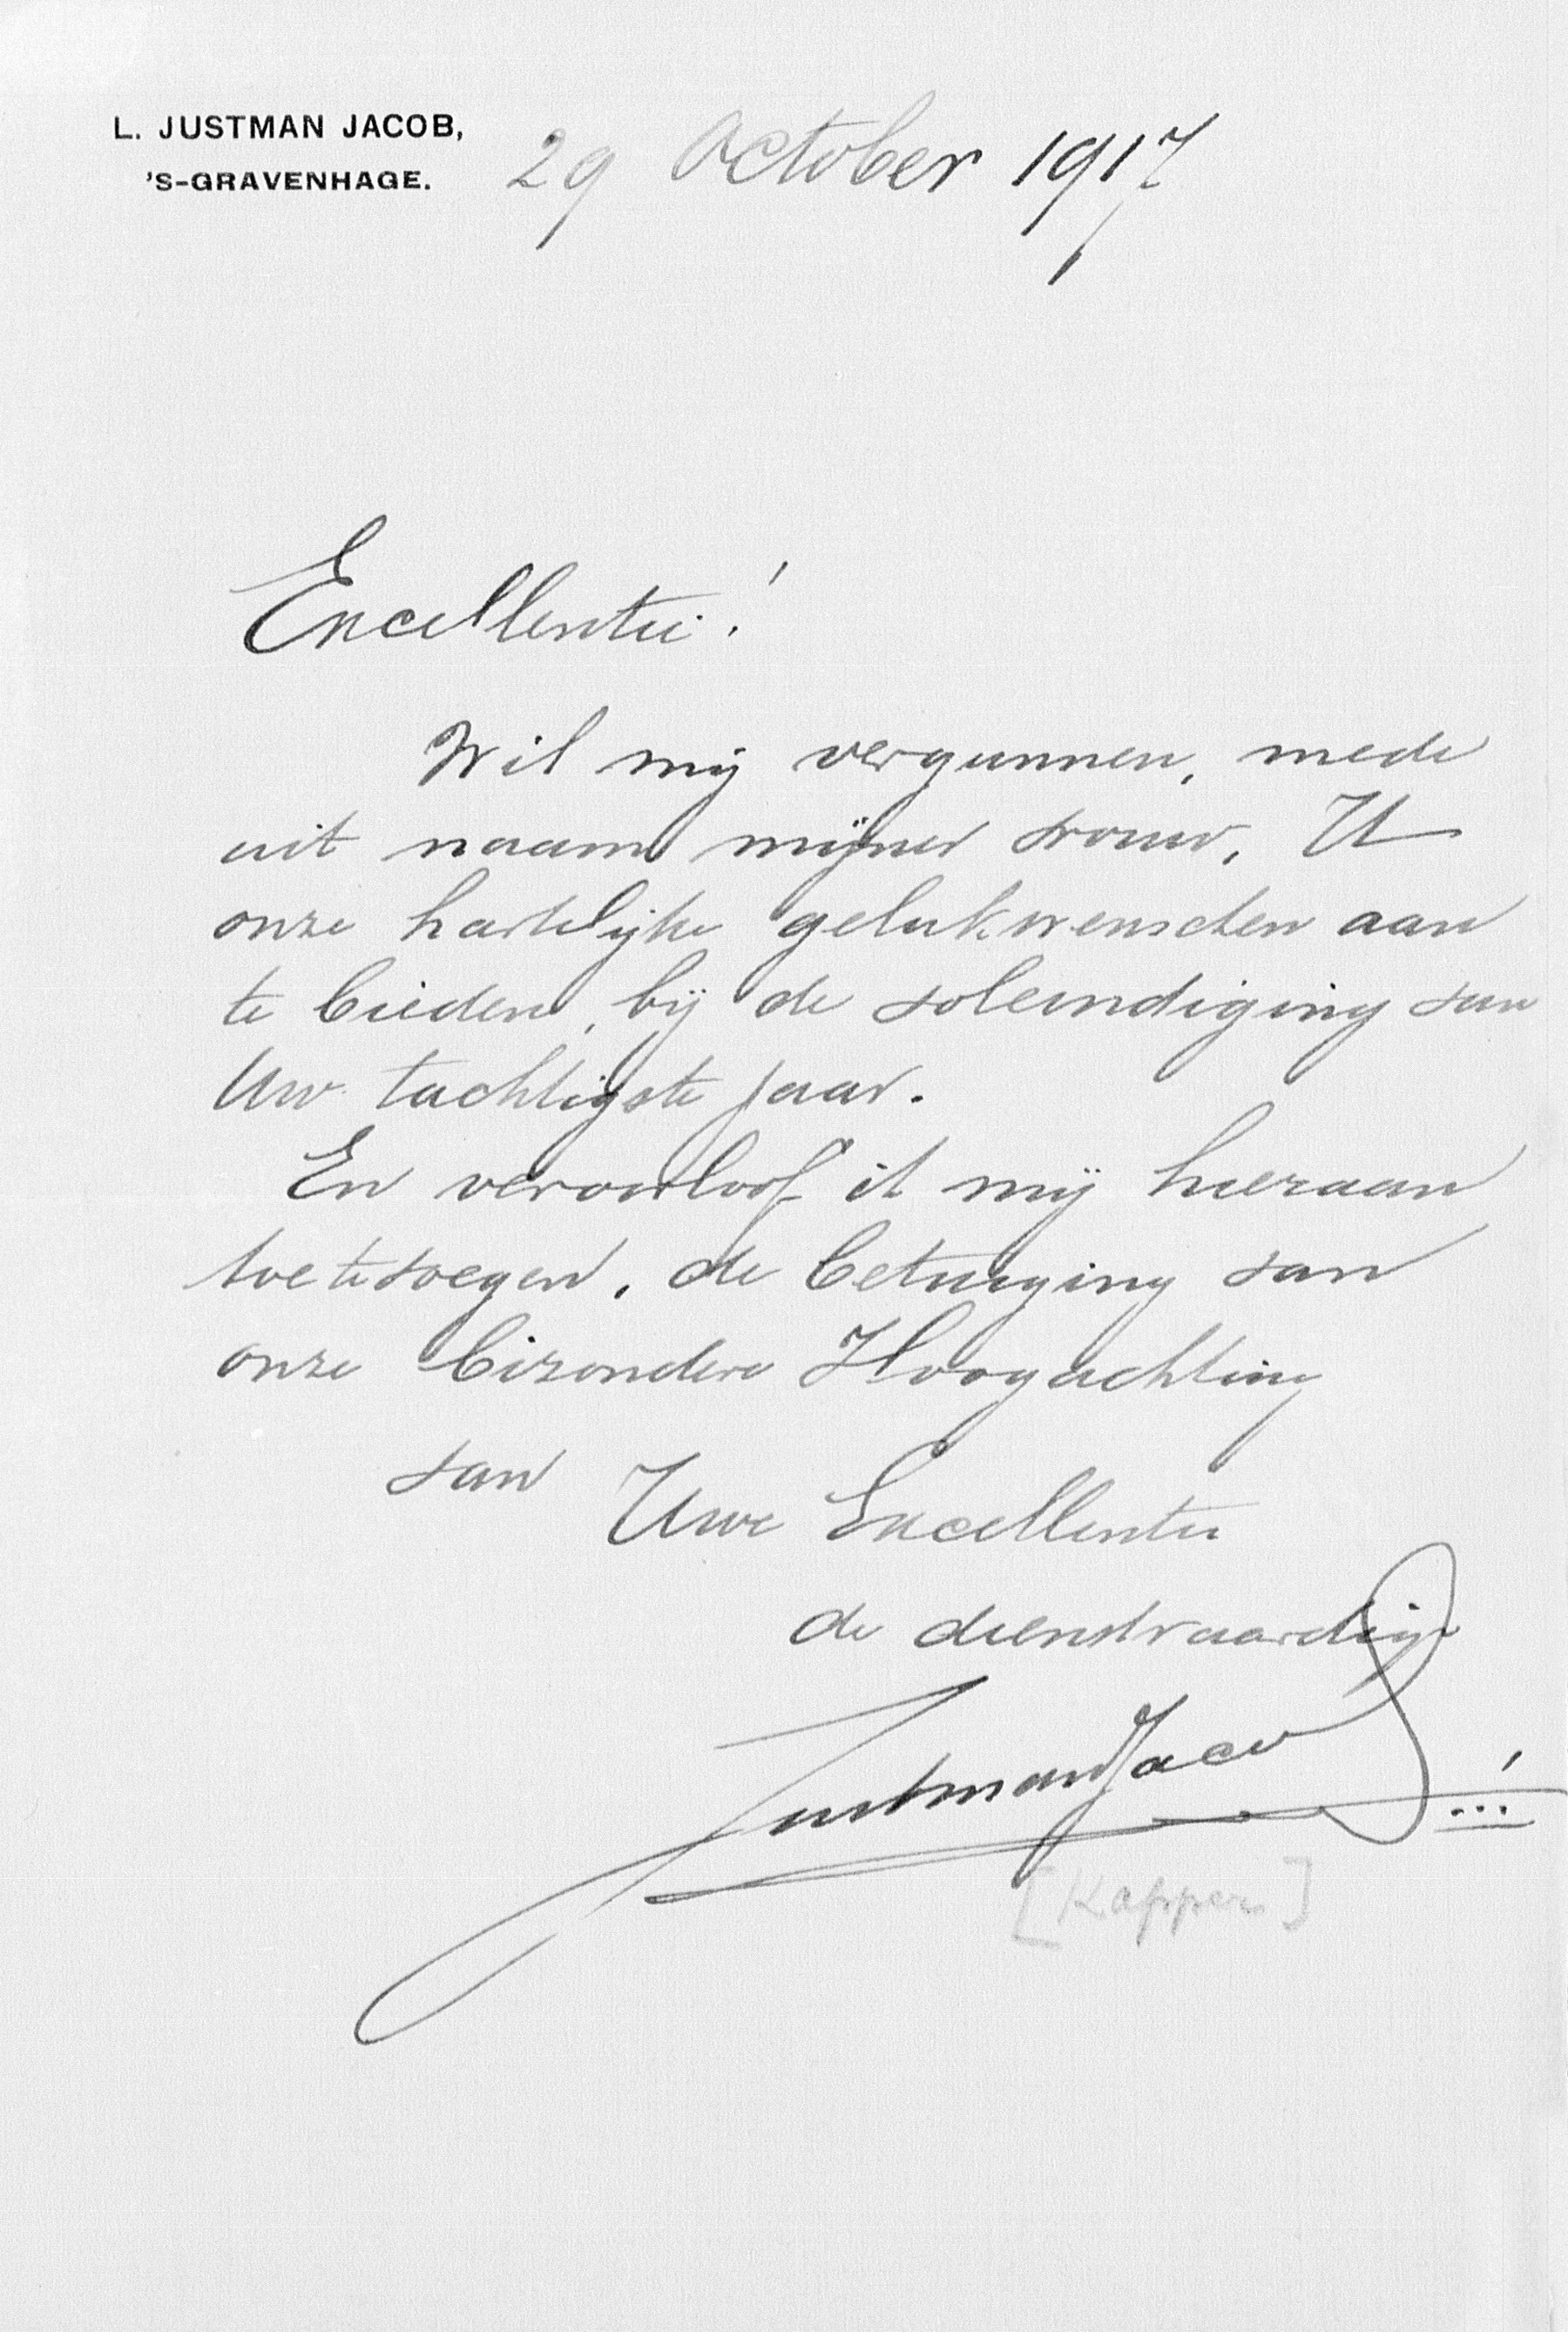 L. JUSTMAN JACOB,
'S-GRAVENHAGE.
29 October 1917
Excellentie!
Wil mij vergunnen, mede
uit naam mijner vrouw, U
onze hartelijke gelukwenschen aan
te bieden, bij de voleindiging van
Uw tachtigste jaar.
En veroorloof ik mij hieraan
toetevoegen, de betuiging van
onze bizondere Hoogachting
van
Uwe Excellentie
de dienstvaardige
Justman Jacob
[Kapper]